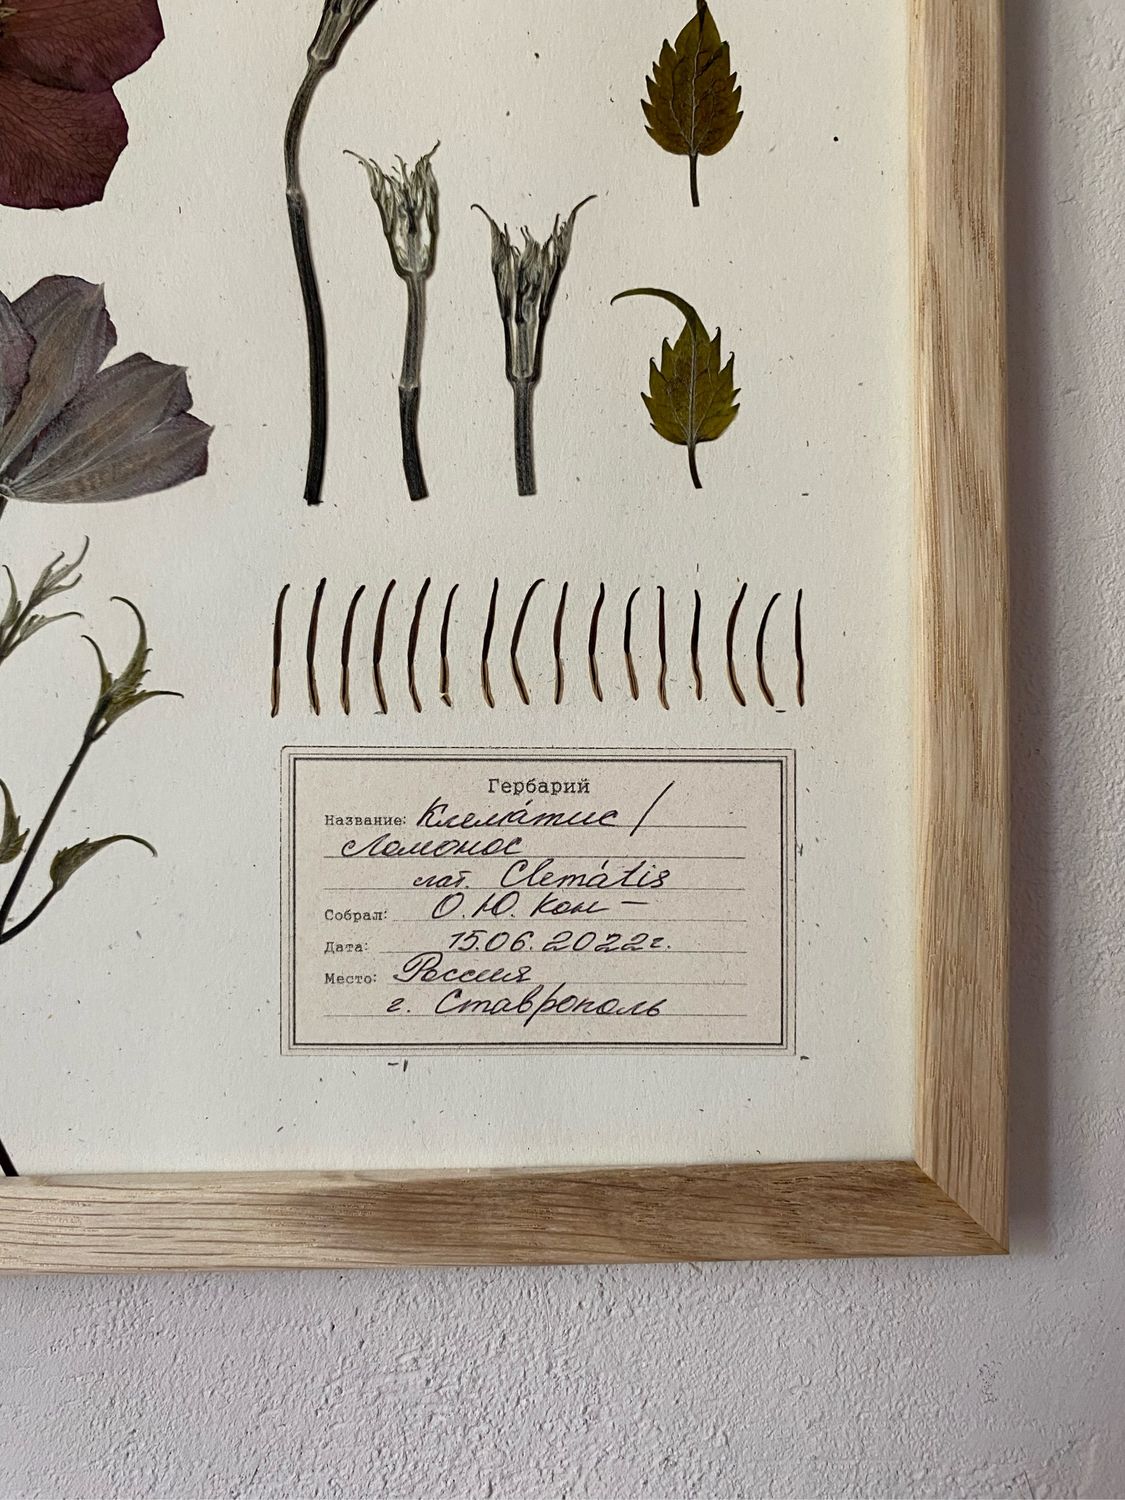 Гербарий
Название: Клема́тис /
Ломонос
лат. Clemátis
Собрал: О. Ю. Кон —
Дата: 15.06.2022г.
Место: Россия
г. Ставрополь